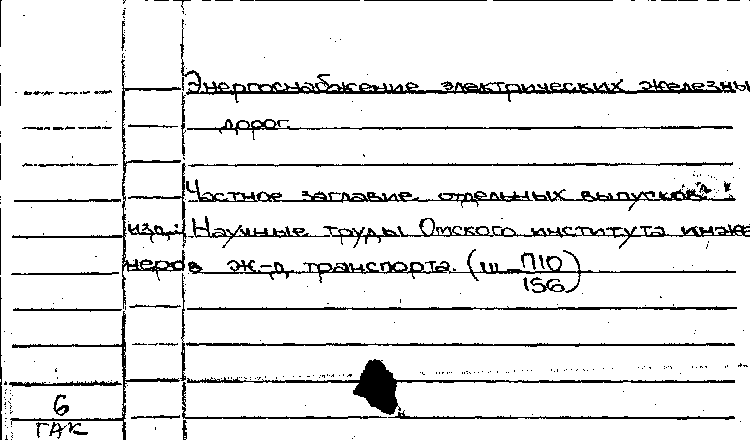 Энергоснабжение электрических железны
дорог.
Частное заглавие отдельных выпусков
изд.: Научные труды Омского института инже
неров ж-д транспорта. (ш П10/156)
6
ГАК